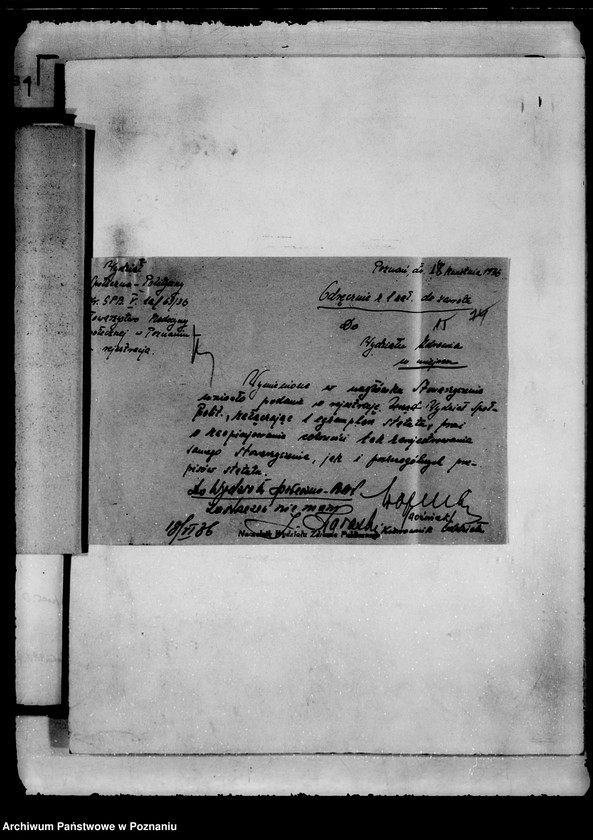 Wydział
Społeczno-Polityczny
Nr. SPB. V. 1a/69/36
Towarzystwo Medycyny
Społecznej w Poznaniu
- rejestracja.
Poznań, dn. 18 kwietnia 1936
Odręcznie z 1 zał. do zwrotu
Do 15
Wydziału Zdrowia
w miejscu
Wymienione w nagłówku Stowarzyszenie
wniosło podanie o rejestrację. Urząd Wydział Społ.-
Polit., załączając 1 egzemplarz statutu, prosi
o zaopiniowanie celowości tak zarejestrowania
samego Stowarzyszenia, jak i poszczególnych prze-
pisów statutu.
do Wydziału Społeczno-Polit.
zastrzeżeń nie mam
Kierownik Oddziału
18/VI 36
Naczelnik Wydziału Zdrowia Publicznego
Archiwum Państwowe w Poznaniu